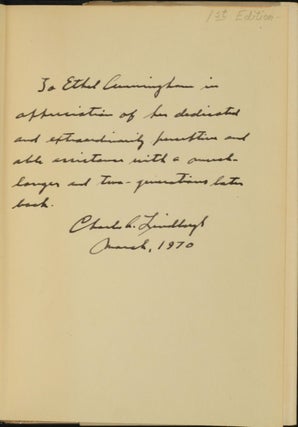 1st Edition
To Ethel Cunningham in
appreciation of her dedicated
and extraordinarily perceptive and
able assistance with a much-
longer and two-generations later
book.
Charles A. Lindbergh
March, 1970